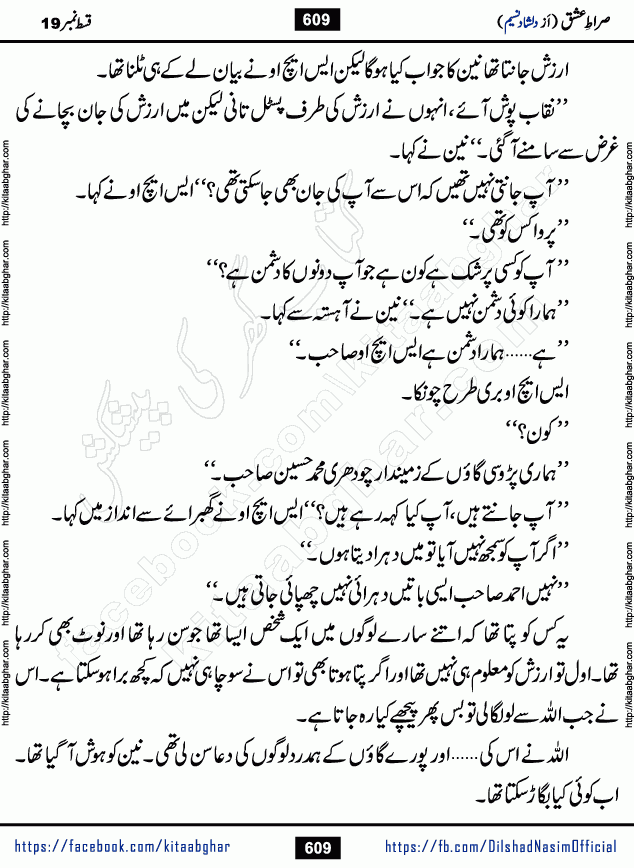 صراطِ عشق (از دلشاد نسیم)
609
قسط نمبر 19
ارزش جانتا تھا نین کا جواب کیا ہوگا لیکن ایس ایچ او نے بیان لے کے ہی ٹلنا تھا۔
’’نقاب پوش آئے، انہوں نے ارزش کی طرف پسٹل تانی لیکن میں ارزش کی جان بچانے کی
غرض سے سامنے آ گئی۔‘‘ نین نے کہا۔
’’آپ جانتی نہیں تھیں کہ اس سے آپ کی جان بھی جا سکتی تھی؟‘‘ ایس ایچ او نے کہا۔
’’پروا کس کو تھی۔‘‘
’’آپ کو کسی پر شک ہے کون ہے جو آپ دونوں کا دشمن ہے؟‘‘
’’ہمارا کوئی دشمن نہیں ہے۔‘‘ نین نے آہستہ سے کہا۔
’’ہے……ہمارا دشمن ہے ایس ایچ او صاحب۔‘‘
ایس ایچ او بری طرح چونکا۔
’’کون؟‘‘
’’ہماری پڑوسی گاؤں کے زمیندار چودھری محمد حسین صاحب۔‘‘
’’آپ جانتے ہیں، آپ کیا کہہ رہے ہیں؟‘‘ ایس ایچ او نے گھبرائے سے انداز میں کہا۔
’’اگر آپ کو سمجھ نہیں آیا تو میں دہرا دیتا ہوں۔‘‘
’’نہیں احمد صاحب ایسی باتیں دہرائی نہیں چھپائی جاتی ہیں۔‘‘
یہ کس کو پتا تھا کہ اتنے سارے لوگوں میں ایک شخص ایسا تھا جو سن رہا تھا اور نوٹ بھی کر رہا
تھا۔ اول تو ارزش کو معلوم ہی نہیں تھا اور اگر پتا ہوتا بھی تو اس نے سوچا ہی نہیں کہ کچھ برا ہو سکتا ہے۔ اس
نے جب اللہ سے لو لگا لی تو بس پھر پیچھے کیا رہ جاتا ہے۔
اللہ نے اس کی……اور پورے گاؤں کے ہمدرد لوگوں کی دعا سن لی تھی۔ نین کو ہوش آ گیا تھا۔
اب کوئی کیا بگاڑ سکتا تھا۔
http://kitaabghar.com http://kitaabghar.com http://kitaabghar.com http://kitaabghar.com http://kitaabghar.com http://kitaabghar.com
http://kitaabghar.com http://kitaabghar.com http://kitaabghar.com http://kitaabghar.com http://kitaabghar.com http://kitaabghar.com
کتاب گھر کی پیشکش
facebook.com/kitaabghar
kitaabghar.com
https://facebook.com/kitaabghar
609
https://fb.com/DilshadNasimOfficial